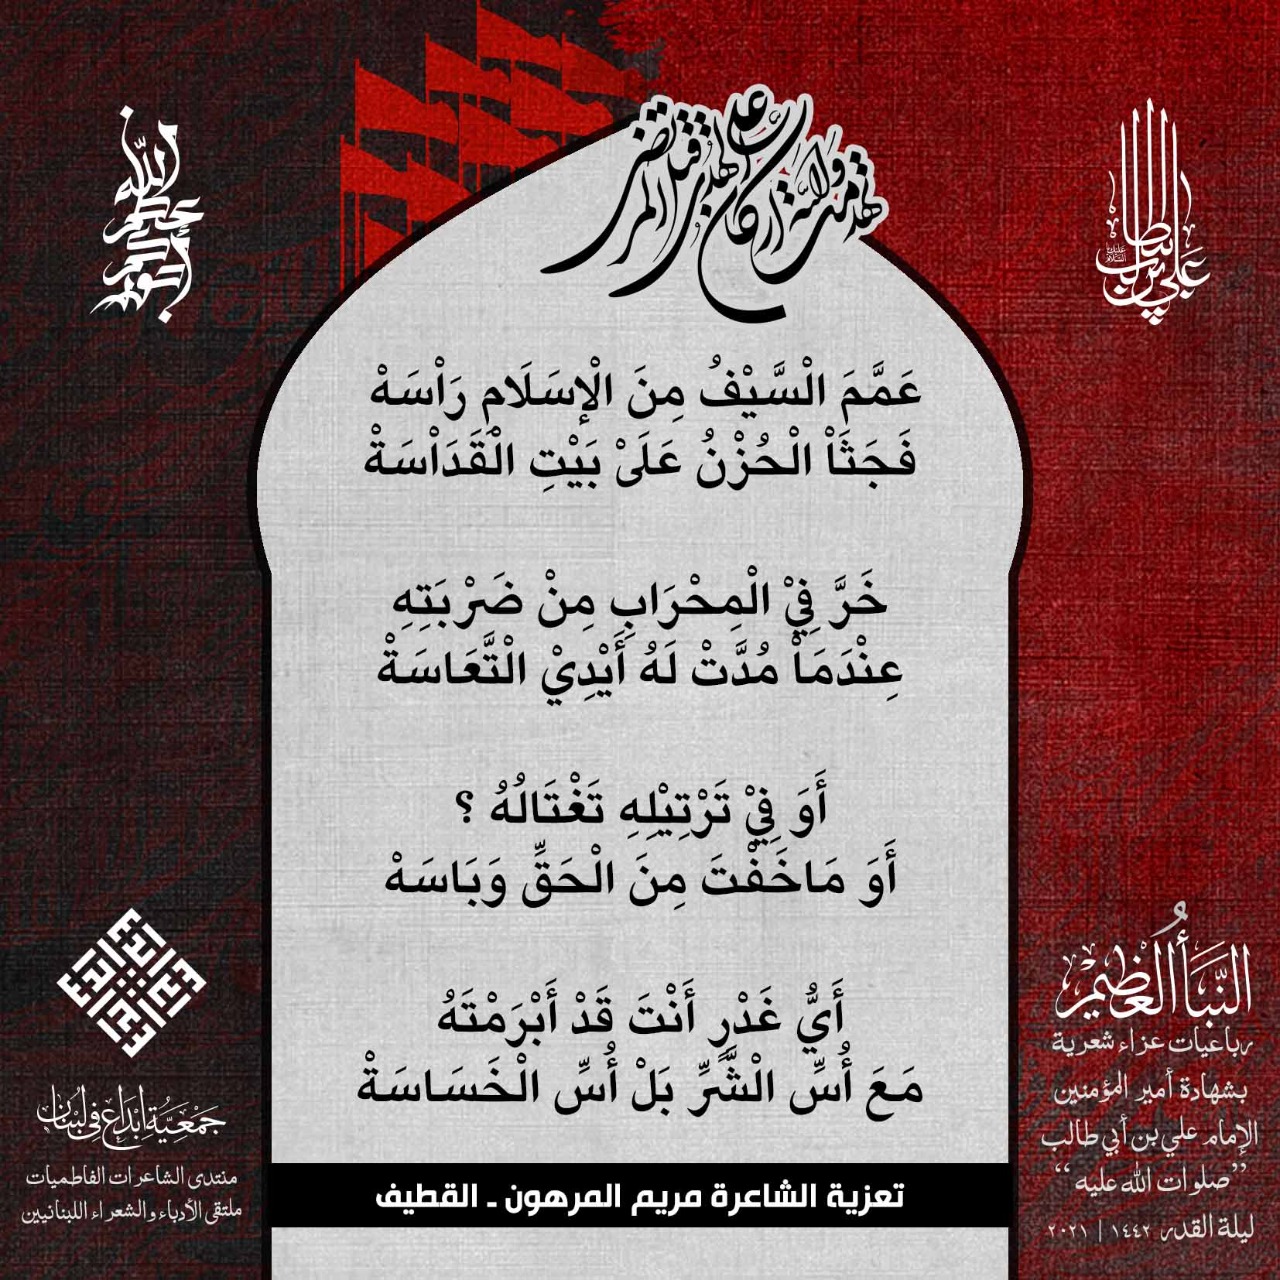 تهدمت والله أركان الهدى قتل علي المرتضى
عظم الله أجوركم
علي بن أبي طالب
عليه السلام
عَمَّمَ الْسَّيْفُ مِنَ الْإسَلَامِ رَاْسَهْ
فَجَثَاْ الْحُزْنُ عَلَىْ بَيْتِ الْقَدَاْسَةْ
خَرَّ فِيْ الْمِحْرَابِ مِنْ ضَرْبَتِهِ
عِنْدَمَاْ مُدَّتْ لَهُ أَيْدِيْ الْتَّعَاسَةْ
أَوَ فِيْ تَرْتِيْلِهِ تَغْتَالُهُ ؟
أَوَ مَاخَفْتَ مِنَ الْحَقِّ وَبَاسَهْ
أَيُّ غَدْرٍ أَنْتَ قَدْ أَبْرَمْتَهُ
مَعَ أُسِّ الْشَّرِّ بَلْ أُسِّ الْخَسَاسَةْ
تعزية الشاعرة مريم المرهون ـ القطيف
النَّبَأُ العَظِيْمُ
رباعيات عزاء شعرية
بشهادة أمير المؤمنين
الإمام علي بن أبي طالب
”صلوات الله عليه“
ليلة القدر ١٤٤٢ | ٢٠٢١
جَمْعِيَّةُ إبْدَاعْ فِي لُبْنَان
منتدى الشاعرات الفاطميات
ملتقى الأدباء والشعراء اللبنانيين